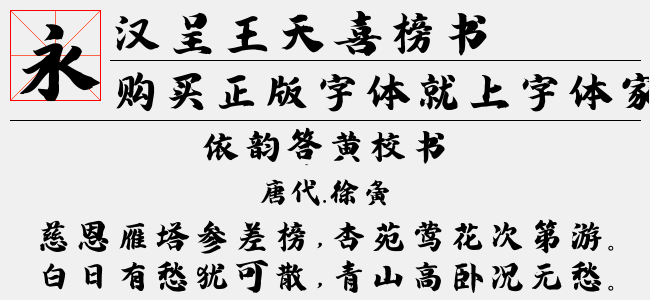 永
汉呈王天喜榜书
购买正版字体就上字体家
依韵答黄校书
唐代.徐夤
慈恩雁塔参差榜，杏苑莺花次第游。
白日有愁犹可散，青山高卧况无愁。